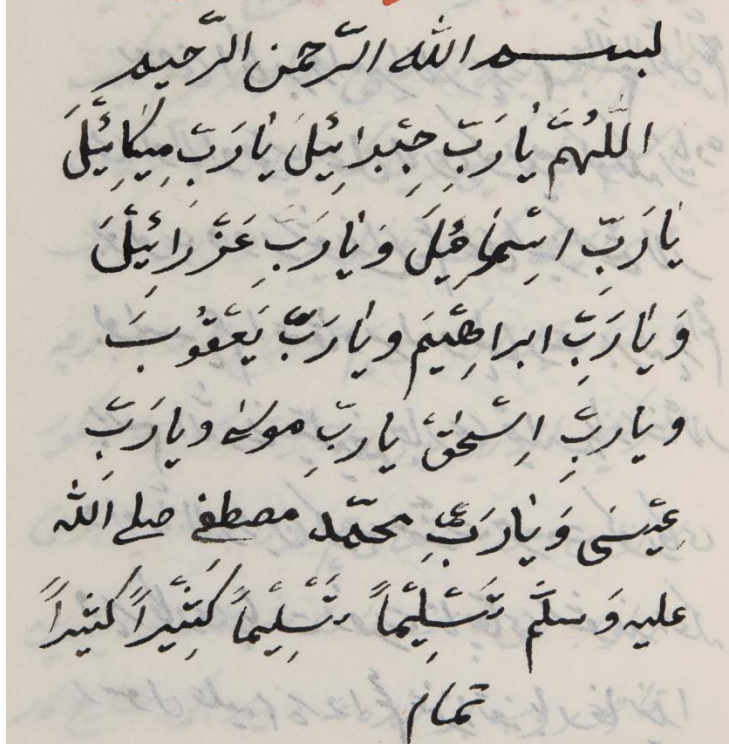 بسم الله الرّحمن الرّحيم
اللّٰهُمَّ يٰارَبِّ جِبْرائِيْلَ يٰارَبِّ مِيْكٰائِيْلَ
يٰارَبِّ اِسْمٰاعِيْلَ وَيٰارَبِّ عَزْرٰائِيْلَ
وَيٰارَبِّ ابراهِيْمَ ويٰارَبِّ يَعْقُوبَ
ويارَبِّ اِسْحٰقَ ياربِّ موسٰى ويارَبِّ
عِيْسَى وَيٰارَبِّ محمّد مصطفى صلى الله
عليه وَسلَّم تَسْلِيْماً تَسْلِيْماً كَثِيْراً كثيراً
تمام